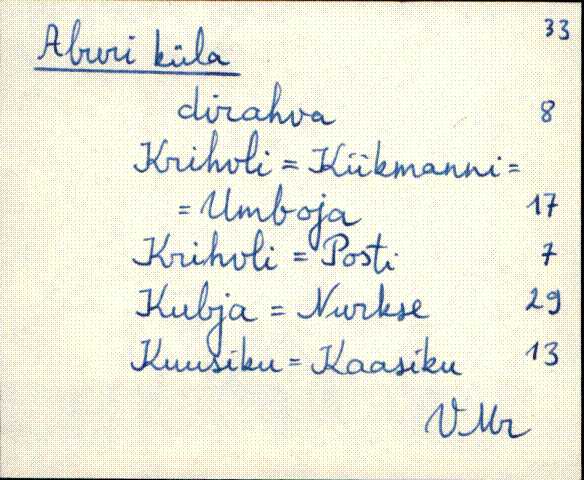 33
Aburi küla
dirahva 8
Krihvli = Kükmanni =
= Umboja 17
Krihvli = Posti 7
Kubja = Nurkse 29
Kuusiku = Kaasiku 13
VMr